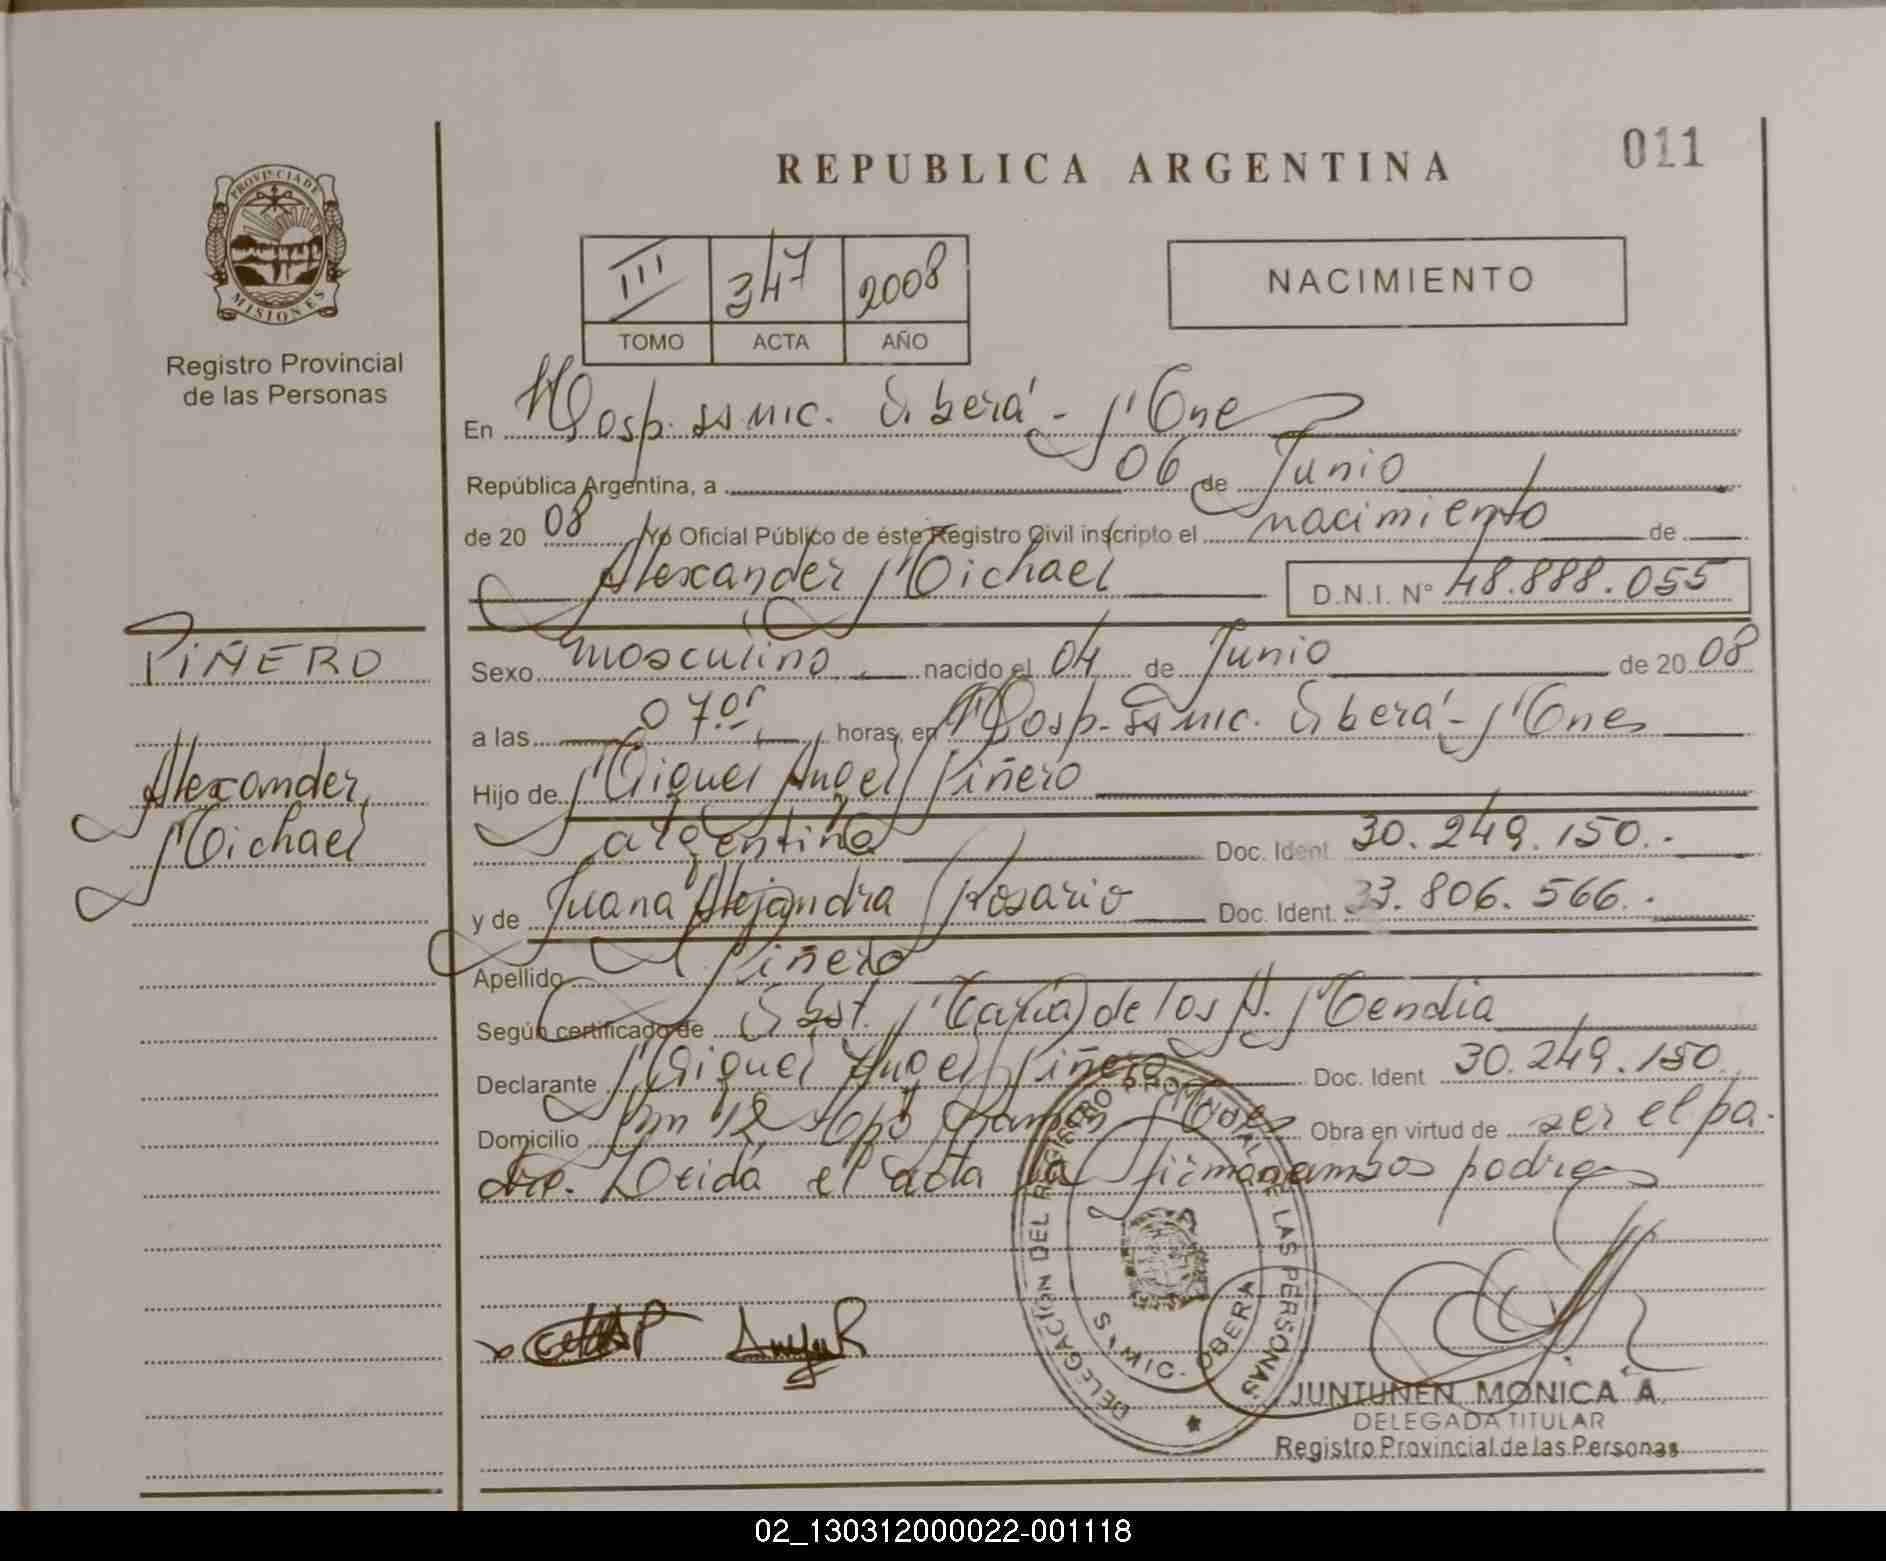 011
REPUBLICA ARGENTINA
PROVINCIA DE
MISIONES
Registro Provincial
de las Personas
III 347 2008
TOMO ACTA AÑO
NACIMIENTO
En Hosp. SS Mic. Oberá - M'ones
República Argentina, a 06 de Junio
de 20 08 Yo Oficial Público de éste Registro Civil inscripto el nacimiento de
Alexander Michael D.N.I. Nº 48.888.055
PIÑERO
Alexander
Michael
Sexo masculino nacido el 04 de Junio de 20 08
a las 07.01 horas, en Hosp. SS Mic. Oberá - M'ones
Hijo de Miguel Angel Piñero
argentina Doc. Ident. 30.249.150.-
y de Juana Alejandra Rosario Doc. Ident. 33.806.566.-
Apellido Piñero
Según certificado de Obst. María de los A. Mendia
Declarante Miguel Angel Piñero Doc. Ident 30.249.150
Domicilio Km 12 Obra en virtud de ser el pa.
dre. Leida el acta la firman ambos padres
DELEGACIÓN DEL REGISTRO PROVINCIAL DE LAS PERSONAS
OBERA
JUNTUNEN MONICA A.
DELEGADA TITULAR
Registro Provincial de las Personas
02_130312000022-001118